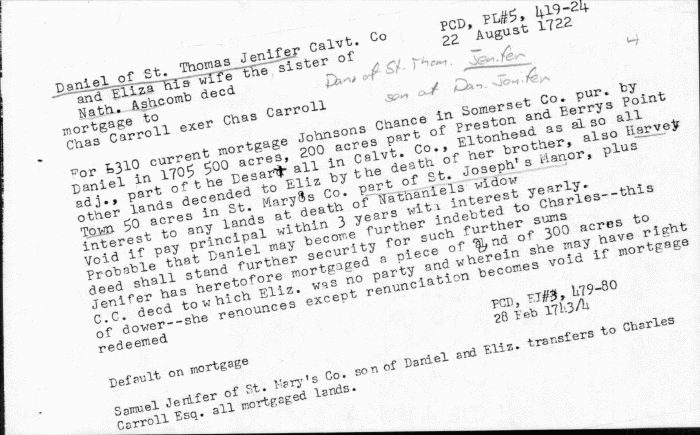 PCD, PL#5, 419-24
22 August 1722
Daniel of St. Thomas Jenifer Calvt. Co
and Eliza his wife the sister of
Nath. Ashcomb decd
mortgage to
Chas Carroll exer Chas Carroll
Dan of St. Thom. Jenifer
son of Dan. Jenifer
4
For £310 current mortgage Johnsons Chance in Somerset Co. pur. by
Daniel in 1705 500 acres, 200 acres part of Preston and Berrys Point
adj., part of the Desart all in Calvt. Co., Eltonhead as also all
other lands decended to Eliz by the death of her brother, also Harvey
Town 50 acres in St. Marys Co. part of St. Joseph's Manor, plus
interest to any lands at death of Nathaniels widow
Void if pay principal within 3 years with interest yearly.
Probable that Daniel may become further indebted to Charles--this
deed shall stand further security for such further sums
Jenifer has heretofore mortgaged a piece of land of 300 acres to
C.C. decd to which Eliz. was no party and wherein she may have right
of dower--she renounces except renunciation becomes void if mortgage
redeemed
PCD, EI#3, 479-80
28 Feb 1743/4
Default on mortgage
Samuel Jenifer of St. Mary's Co. son of Daniel and Eliz. transfers to Charles
Carroll Esq. all mortgaged lands.